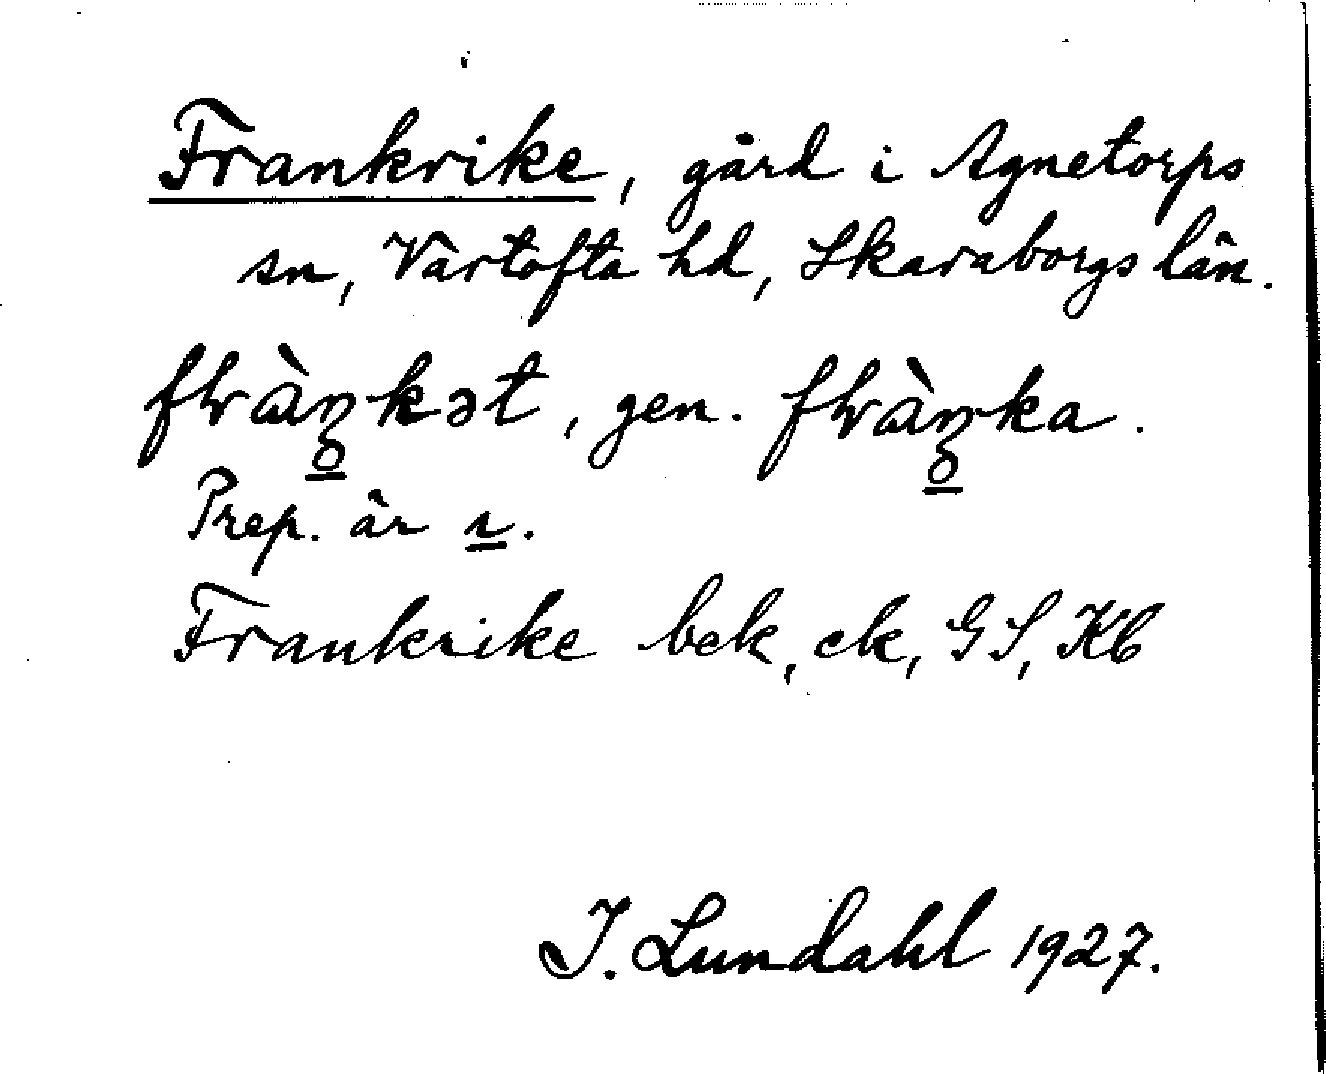 Frankrike, gård i Agnetorps
sn, Vartofta hd, Skaraborgs län.
fràŋkət, gen. fràŋka.
Prep. är ı.
Frankrike bek, ek, GS, Kb
I. Lundahl 1927.